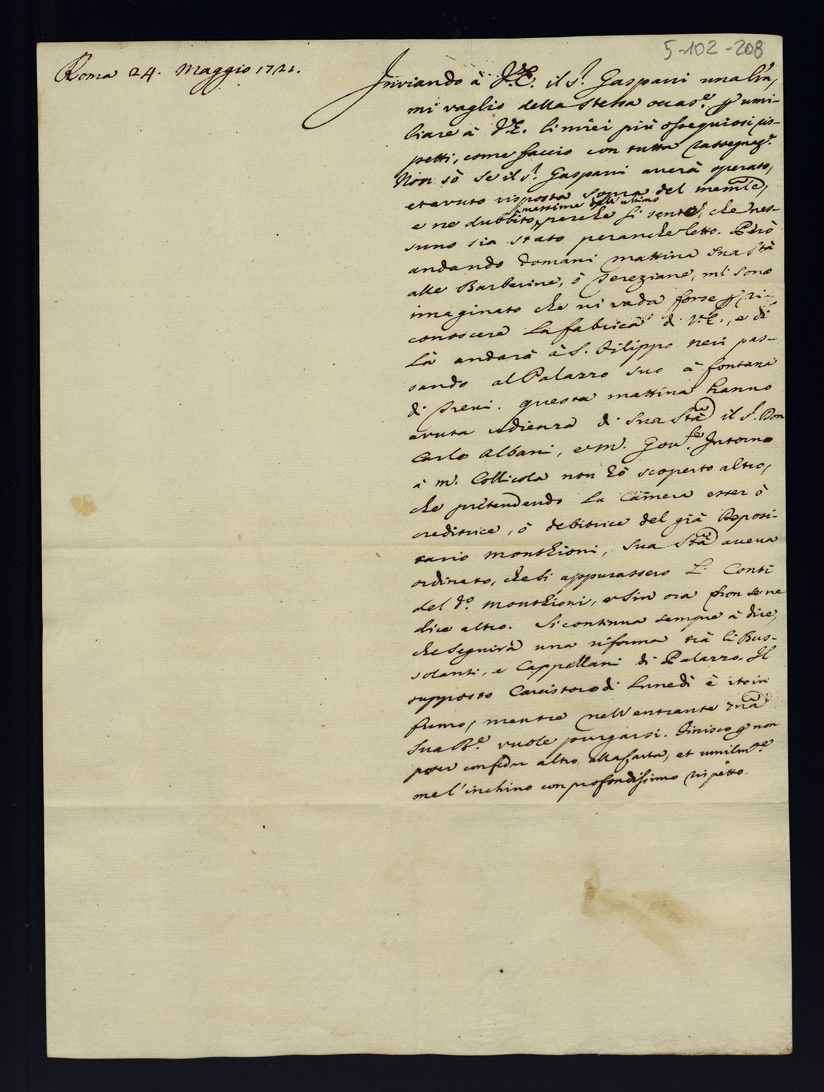 5-102-208
Roma 24. Maggio 1721.
Inviando à V.E. il S.r Gasparri una sua,
mi vaglio della stessa occas.e p umi-
liare à V.E. li miei più ossequiosi ris-
petti, come faccio con tutta rassegnaz.e
Non sò se il S.r Gasparri averà operato,
et avuto risposta sopra del memle,
massime dell'ultimo
e ne dubbito, perche si sente, che nes-
suno sia stato peranche letto. Però
andando domani mattina Sua Stà
alle Barberine, ò Tereziane, mi sono
imaginato che vi vada forse p ri-
conoscere la fabrica di V.E., e di
là andarà à S. Filippo Neri pas-
sando al Palazzo suo à fontana
di Trevi. Questa mattina hanno
avuta udienza di Sua Stà il S.r Don
Carlo Albani, e M.r Gov.re Intorno
à M.r Collicola non hò scoperto altro,
che pretendendo la Camera esser ò
creditrice, ò debitrice del già Deposi-
tario Monthioni, Sua Stà aveva
ordinato, che si appurassero li Conti
del d.o Monthioni, e sin ora non se ne
dice altro. Si continua sempre à dire,
che seguirà una riforma trà li Bus-
solanti, e Cappellani di Palazzo. Il
supposto Concistoro di Lunedì è ito in
fumo, mentre nell'entrante
Sua B.e vuole purgarsi. Finisco p non
poter altro alla carta, et umilm.te
me l'inchino con profondissimo rispetto.